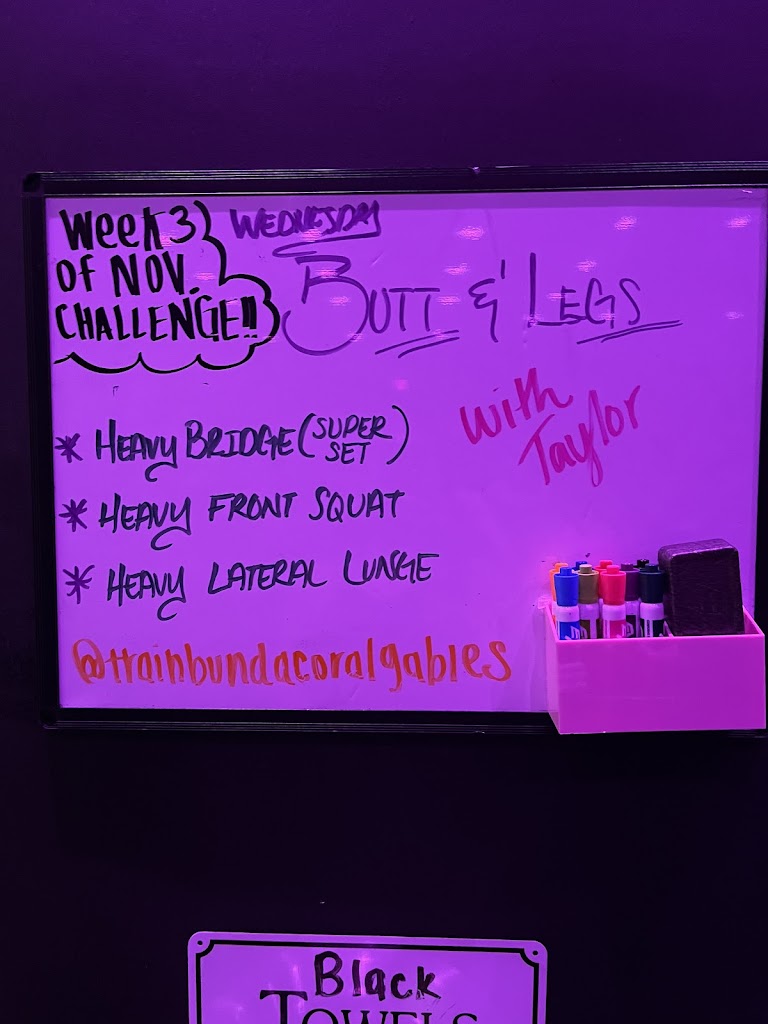 Week 3
OF NOV.
CHALLENGE!!
WEDNESDAY
BUTT & LEGS
with
Taylor
* HEAVY BRIDGE (SUPER
SET)
* HEAVY FRONT SQUAT
* HEAVY LATERAL LUNGE
@trainbundacoralgables
Black
TOWELS